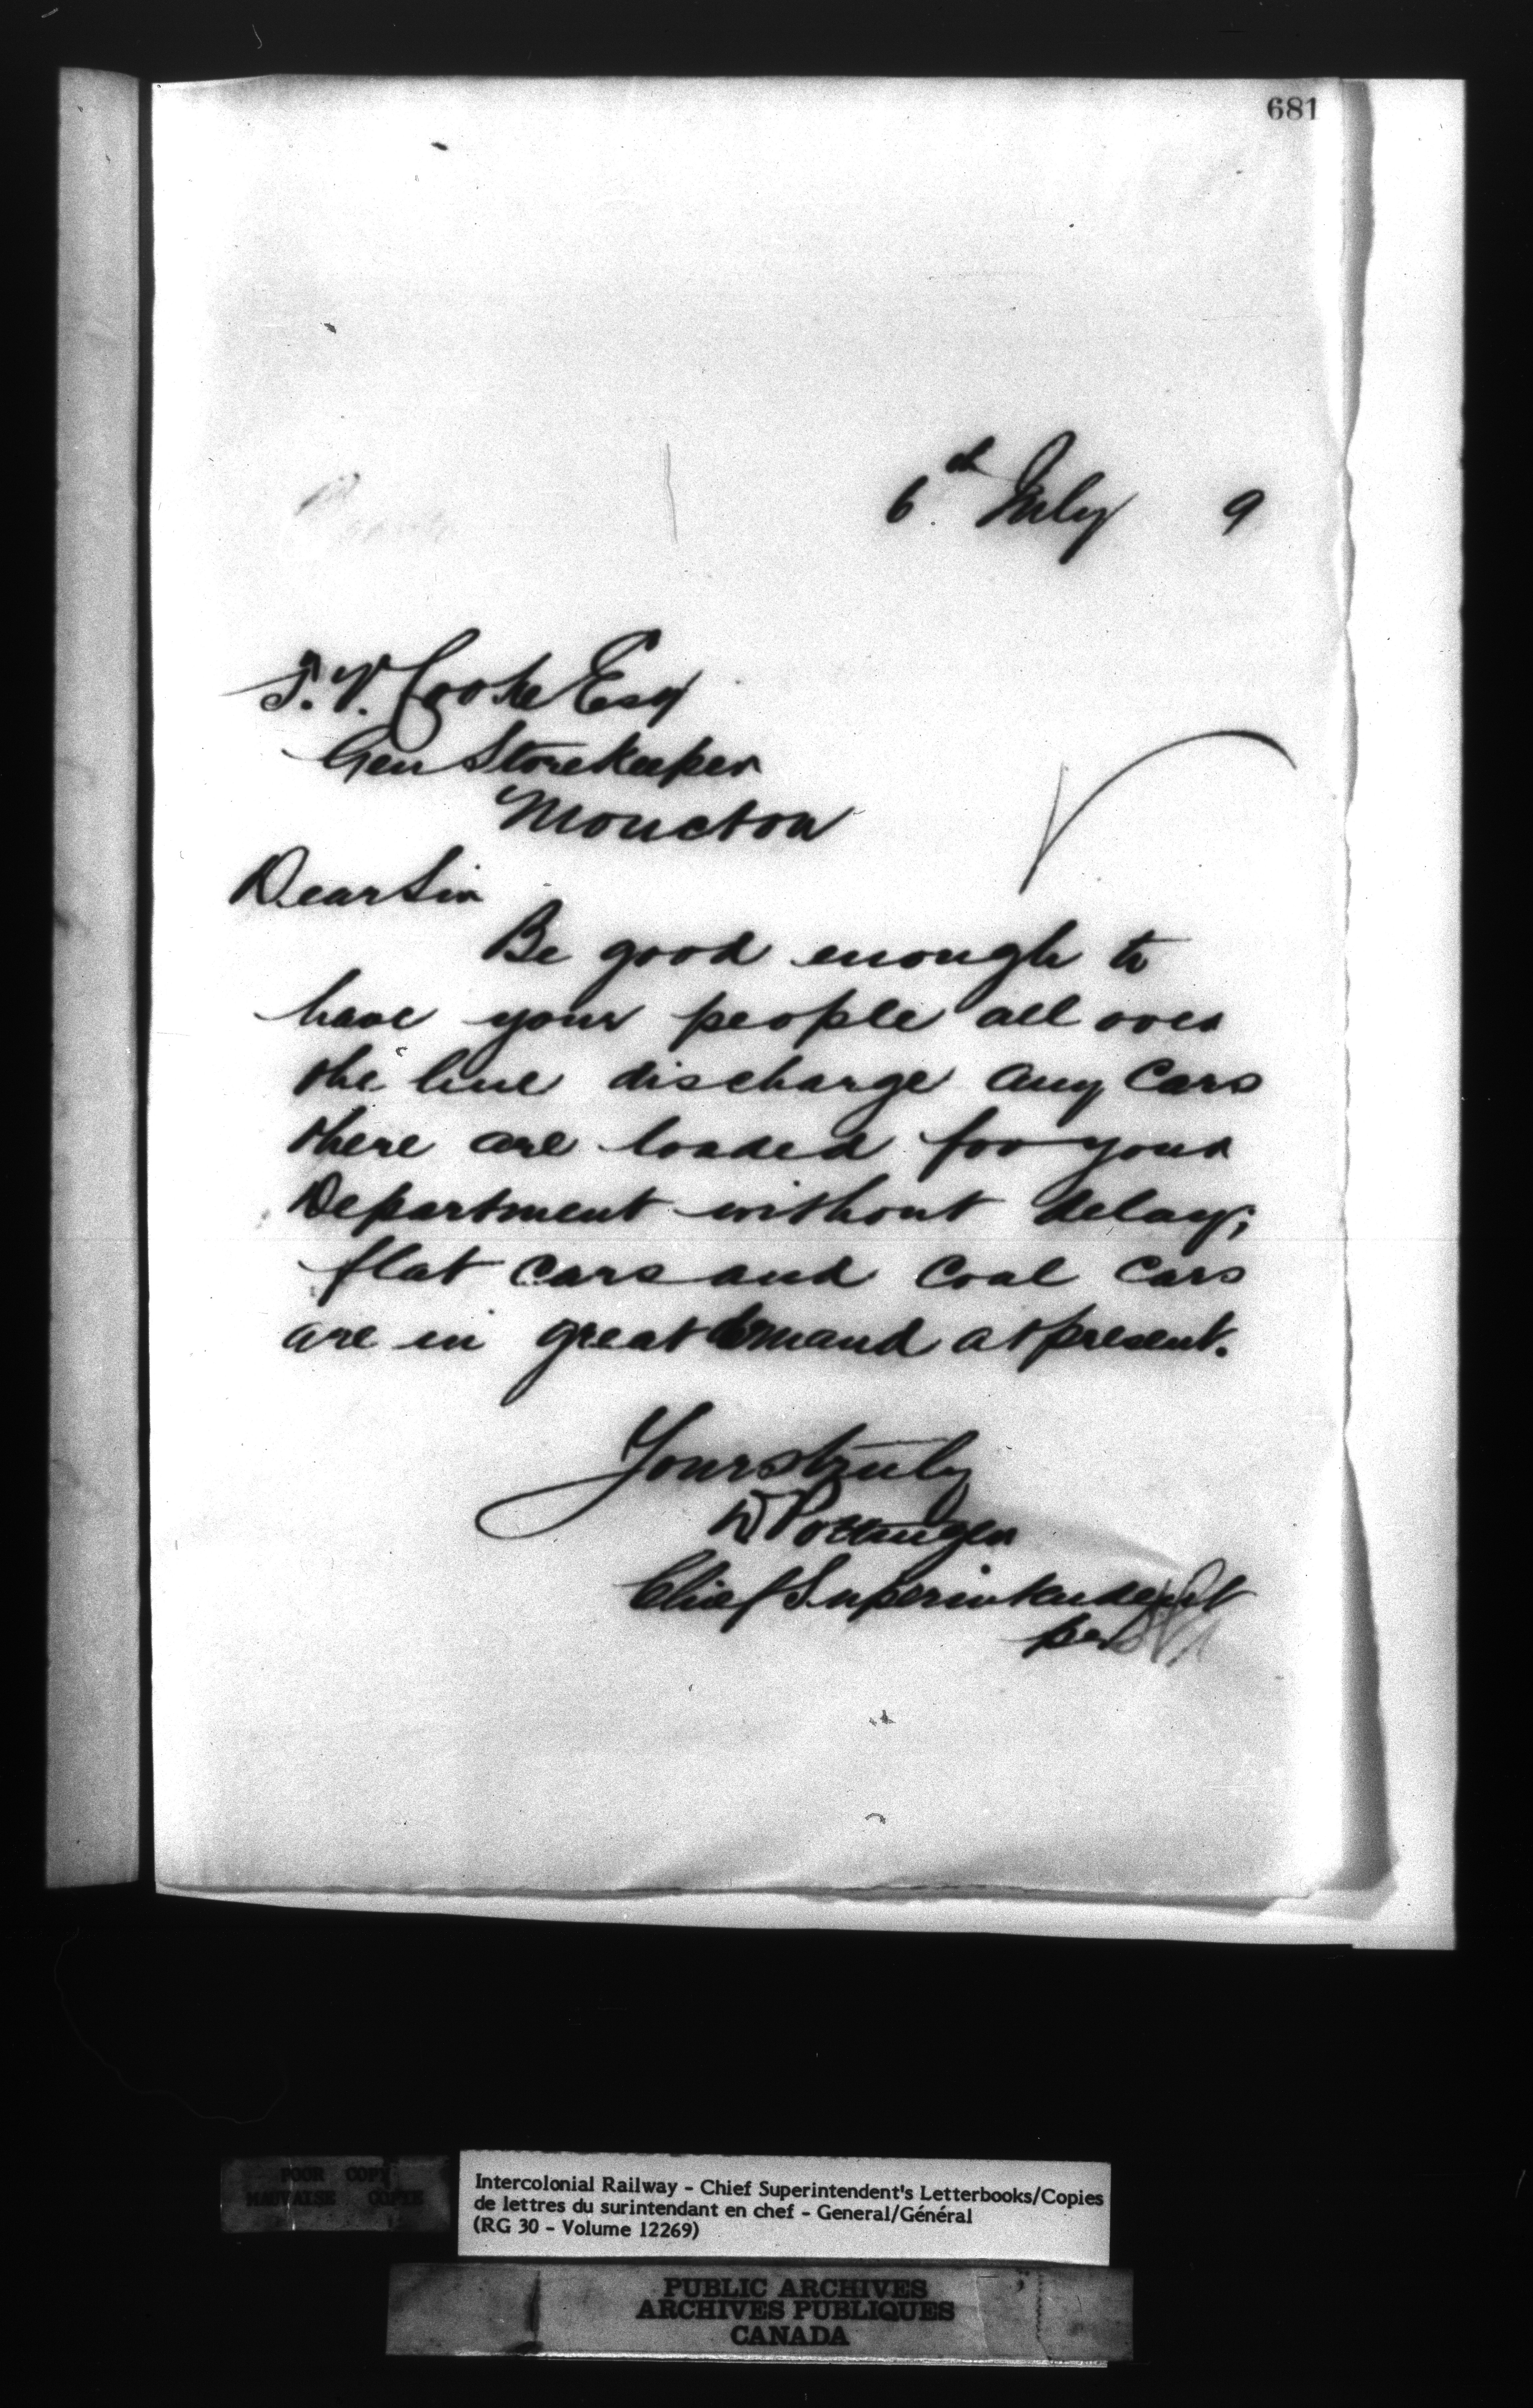 681
6th July 9
T. V. Cooke Esq
Gen Storekeeper
Moncton
Dear Sir
Be good enough to
have your people all over
the line discharge any Cars
there are loaded for your
Department without delay;
flat Cars and Coal Cars
are in great demand at present.
Yours truly
D Pottinger
Chief Superintendent
per
POOR COPY
MAUVAISE COPIE
Intercolonial Railway - Chief Superintendent's Letterbooks/Copies
de lettres du surintendant en chef - General/Général
(RG 30 - Volume 12269)
PUBLIC ARCHIVES
ARCHIVES PUBLIQUES
CANADA